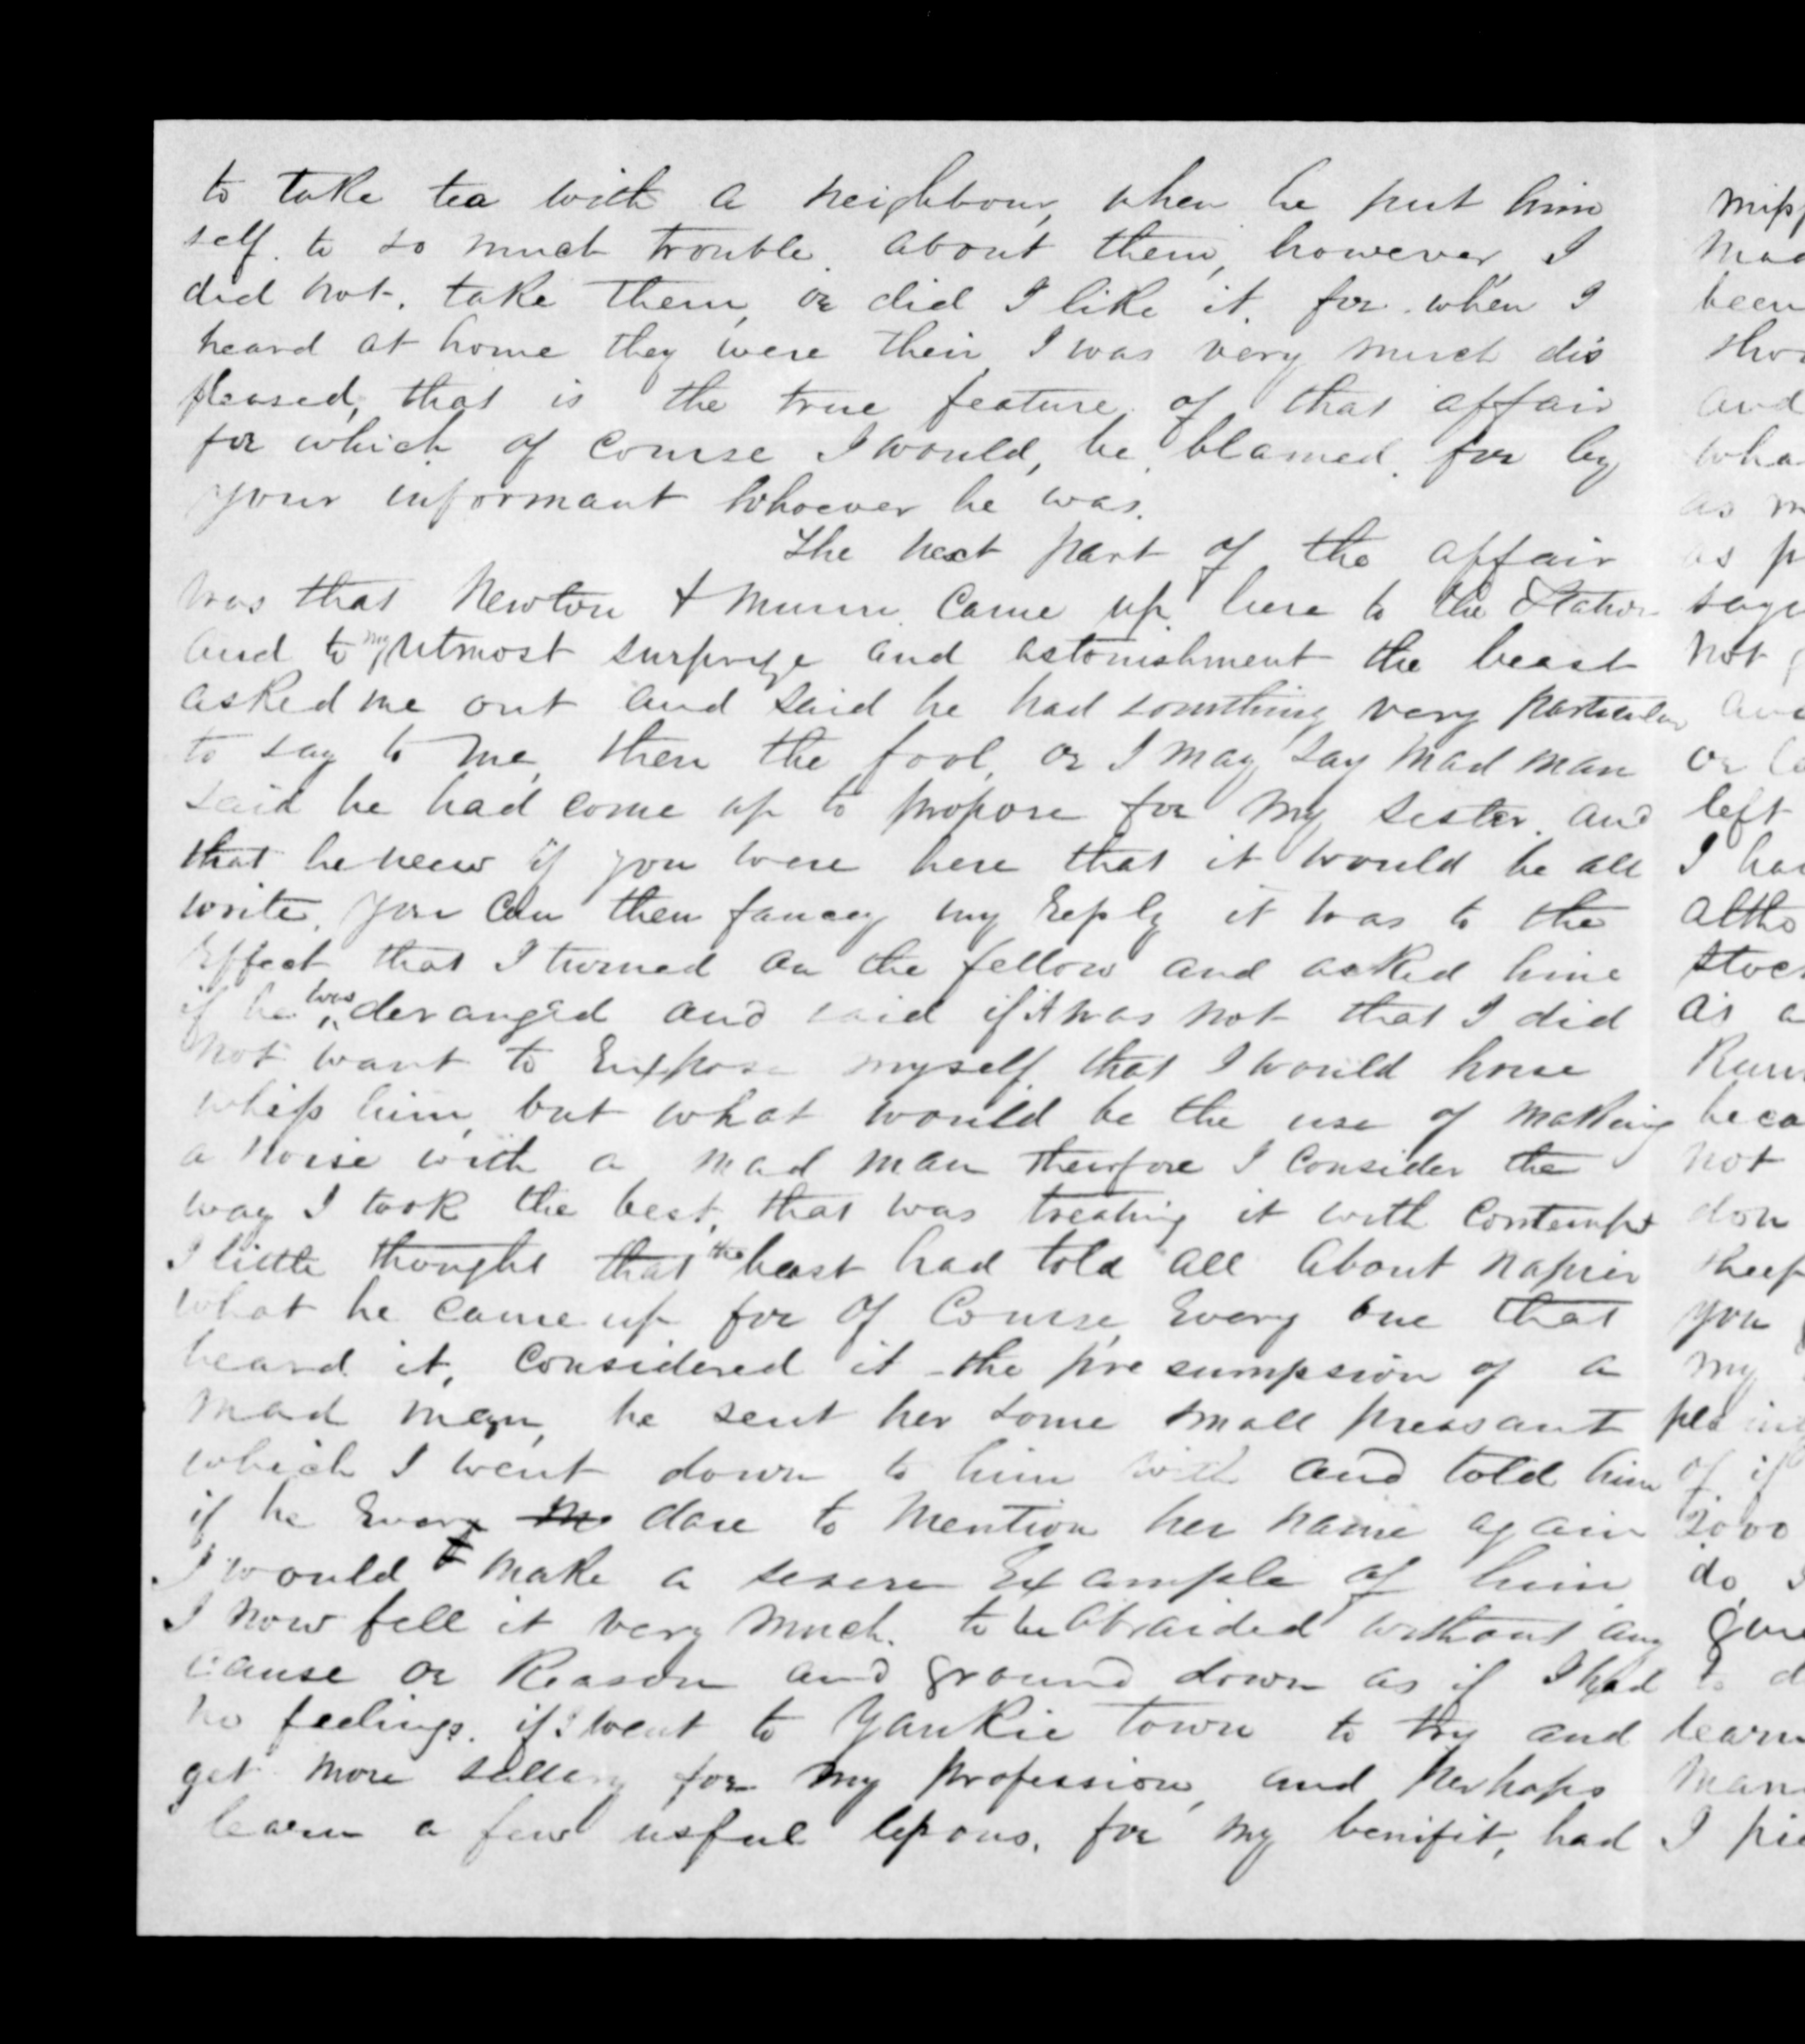 to take tea with a neighbour, when he put him
self. to so much trouble. about them, however, I
did not. take them, or did I like it. for. when I
heard at home they were their, I was very much dis
pleased, that is the true feature. of that affair
for which of course I would, be, blamed. for by
your informant whoever he was.
The next part of the affair
was that Newton & Munn came up here to the Station
and to my utmost surprize and astonishment the beast
asked me out and said he had something very particular
to say to me, then the fool, or I may say mad man
said he had come up to propose for my sister. and
that he neew if you were here that it would be all
write, you can then fancy my reply it was to the
Effect that I turned on the fellow and asked him
if he was deranged and said if it was not that I did
not want to Expose myself that I would horse
whip him, but what would be the use of making
a noise with a mad man therefore I consider the
way I took the best, that was treating it with contempt
I little thought that the beast had told all about Napier
what he came up for of Course, Every one that
heard it, considered it the presumpsion of a
mad man, he sent her some small preasant
which I went down to him with and told him
if he Every dare to mention her name again
I would make a severe Example of him
I now fell it very much. to be abraided without any
cause or Reason and ground down as if I had
no feelings. if I went to Yankie Town to try and
get more sallery for my profession, and perhaps
learn a few usful lessons. for my benifit, had